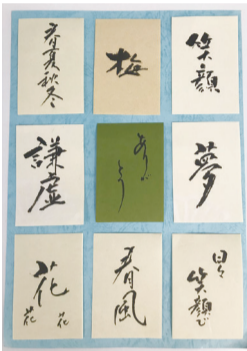 春夏秋冬
梅
笑顔
謙虚
ありが
とう
夢
花
花
花
春風
日々
笑顔で